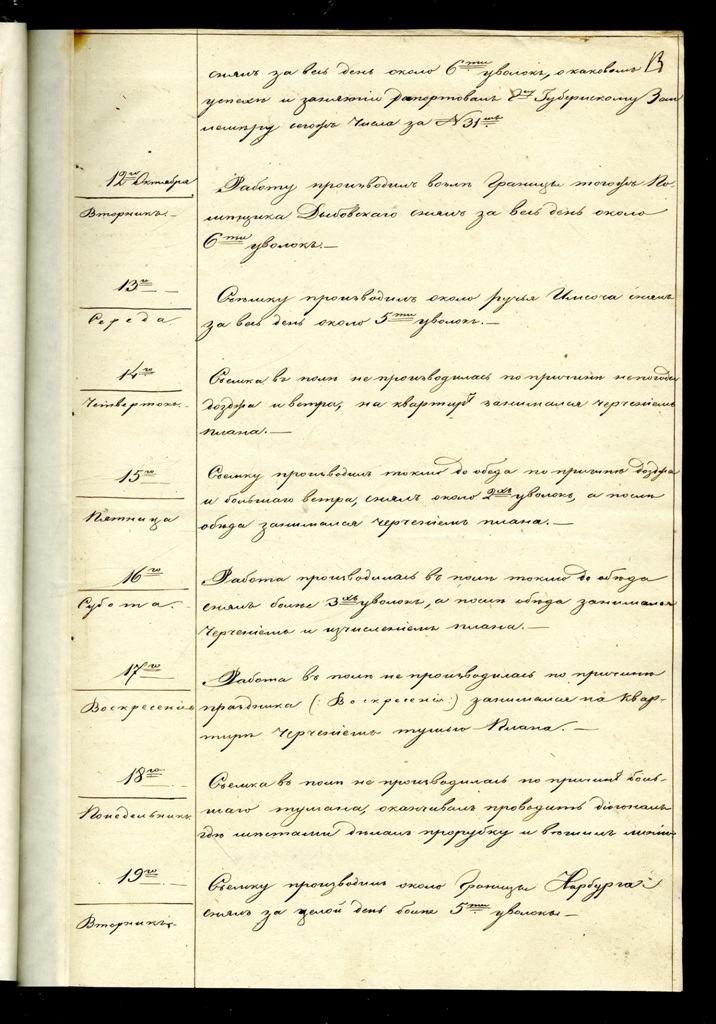 13
снялъ за весь день около 6ти уволокъ, о каковомъ
успехѣ и занятіи рапортовалъ Губернскому Зем
лемѣру сегожъ Числа за № 31мъ
12го Октября
Вторникъ.—
Работу производилъ возлѣ Границы тогожъ По-
мѣщика Дыбовскаго снялъ за весь день около
6ти уволокъ.—
13го
Середа
Съемку производилъ около ручья снялъ
за весь день около 5ти уволокъ.—
14го
Четвертокъ.
Съемка въ полѣ не производилась по причинѣ непогоды
дождя и ветра, на квартирѣ занимался черченіемъ
плана.—
15го
Пятница
Съемку производилъ токмо до обеда по причинѣ дождя
и большаго ветра, снялъ около 2хъ уволокъ, а послѣ
обѣда занимался черченіемъ плана.—
16го
Субота.
Работа производилась въ полѣ токмо до обѣда
снялъ болѣе 3хъ уволокъ, а послѣ обѣда занимался
Черченіемъ и изчисленіемъ плана.—
17го
Воскресеніе
Работа въ полѣ не производилась по причинѣ
праздника (: Воскресенія :) занимался на Квар-
тирѣ Черченіемъ тушью Плана.—
18го
Понедельникъ
Съемка въ полѣ не производилась по причинѣ боль-
шаго тумана, оканчивалъ проводить діогональ
гдѣ мѣстами дѣлалъ прорубку и вѣшилъ линію
19го
Вторникъ.
Съемку производилъ около Границы
снялъ за целой день болѣе 5ти уволокъ.—